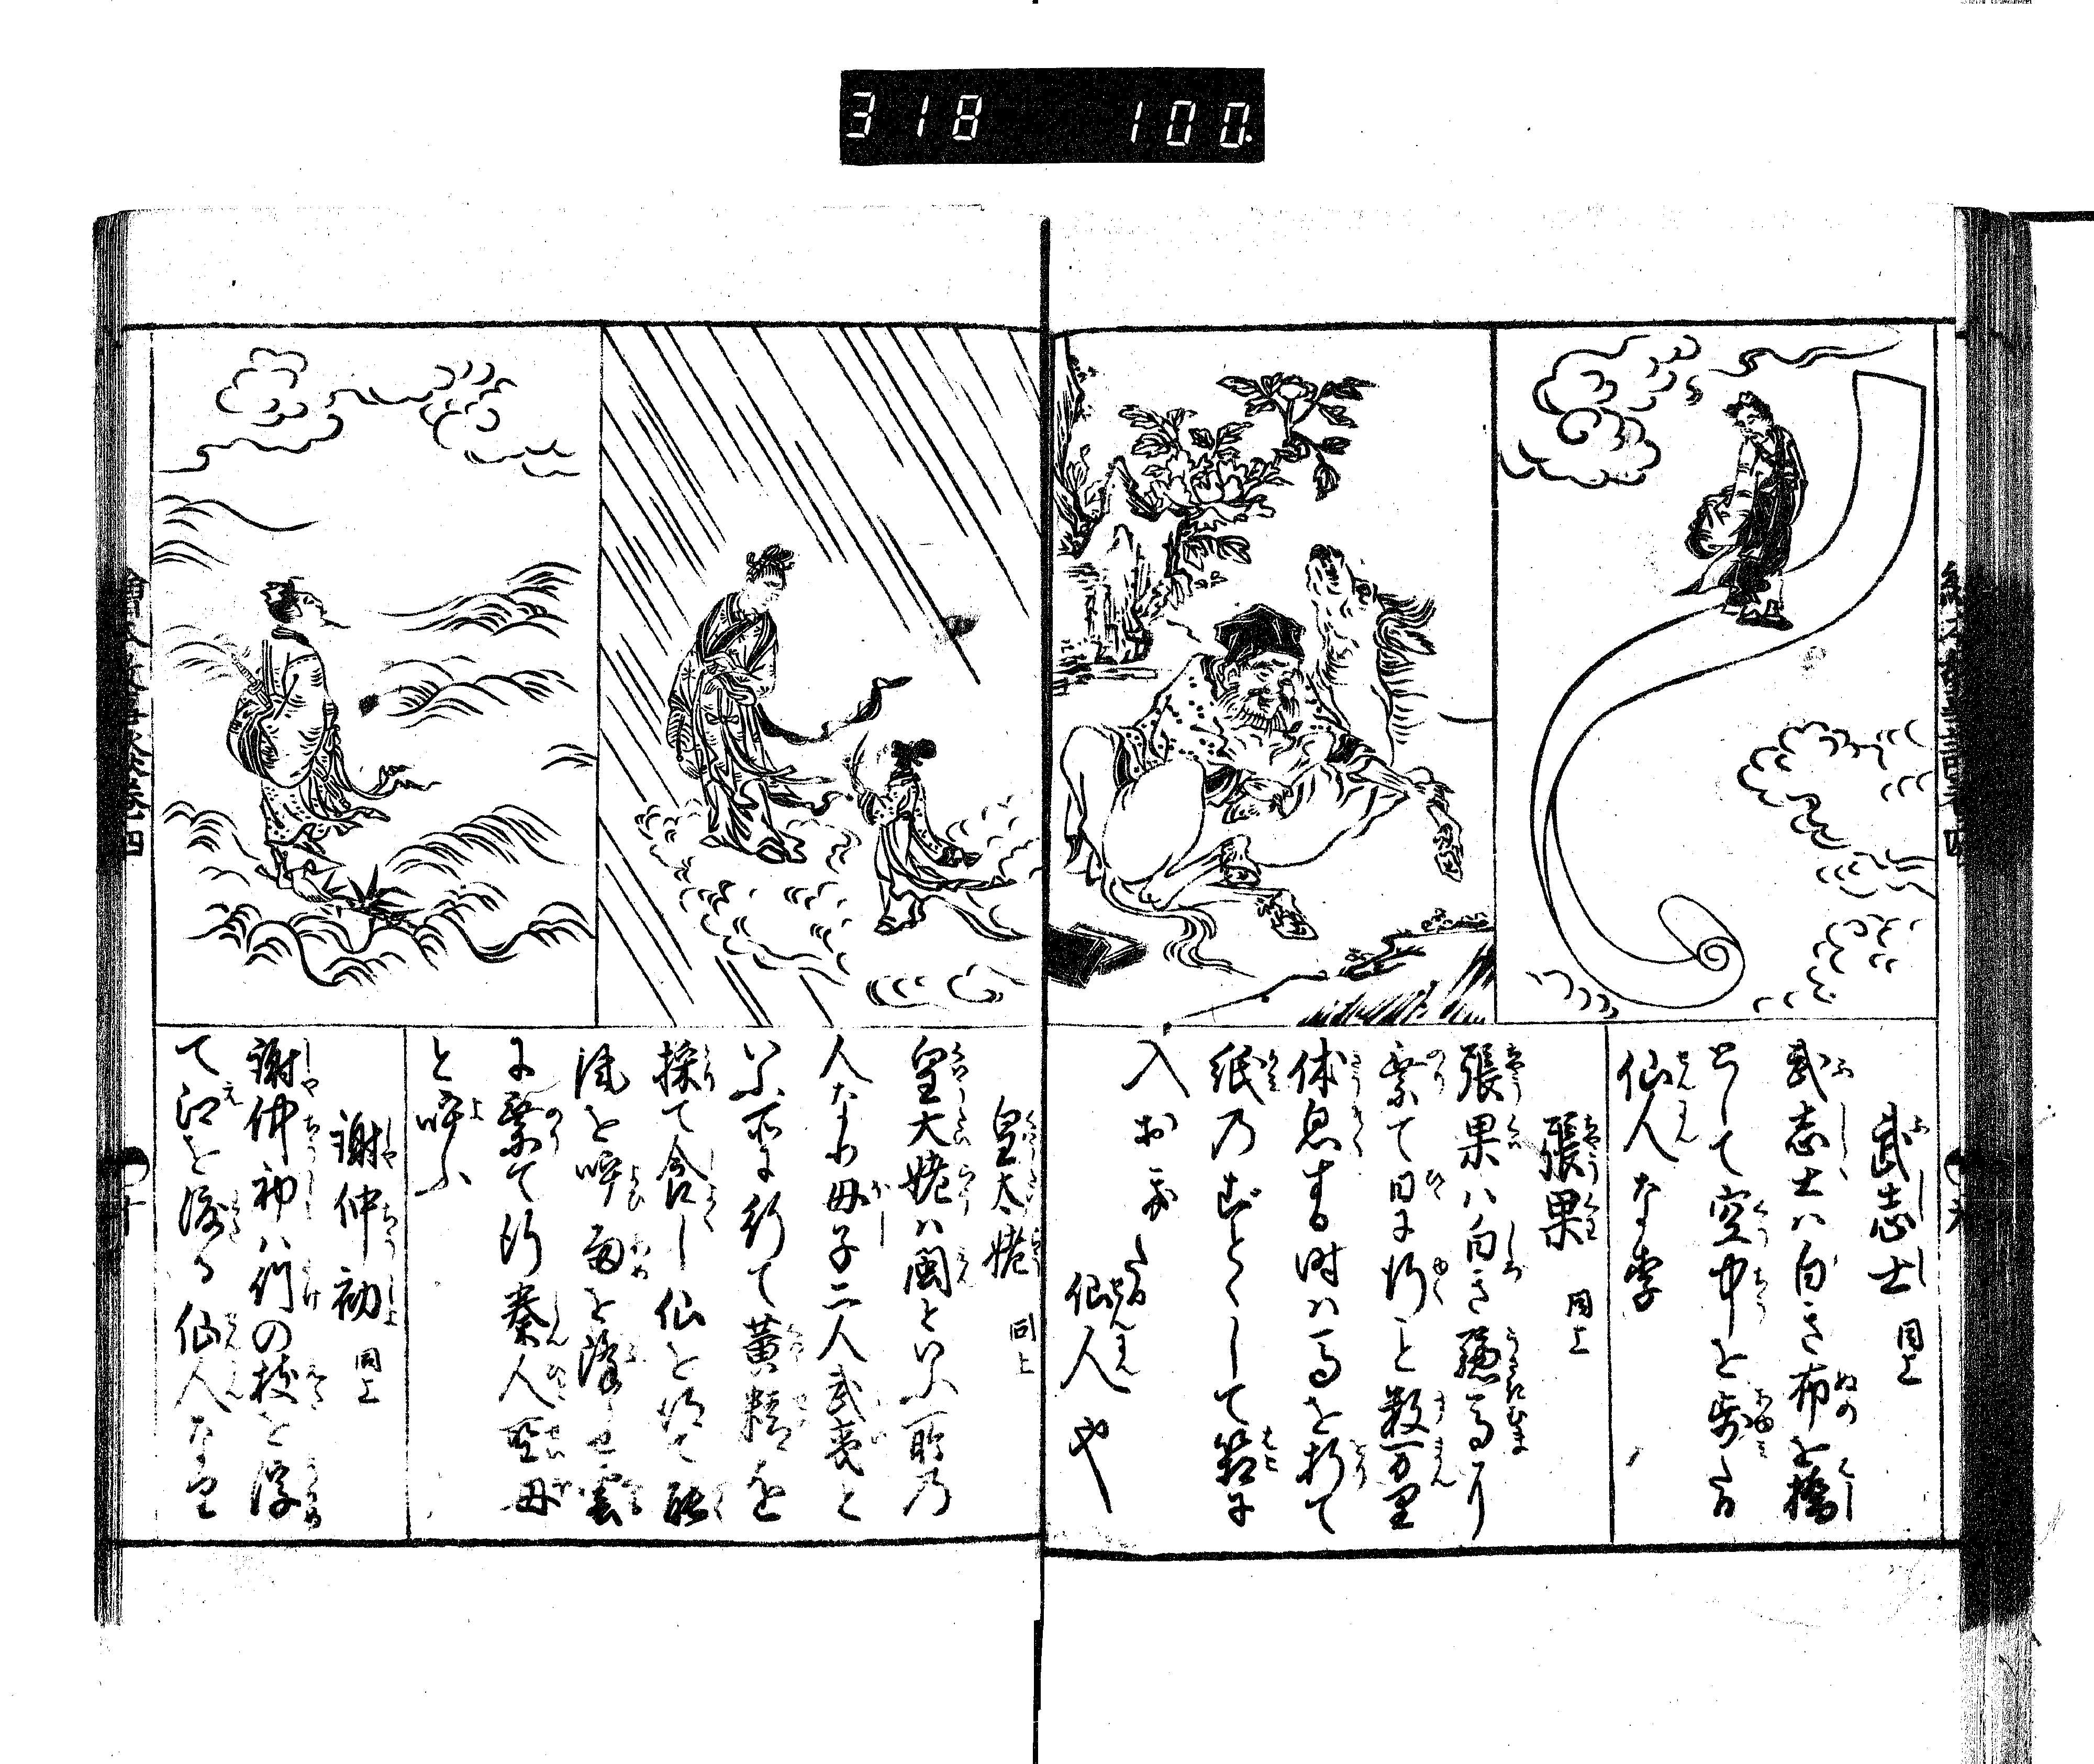 318 100.
武志士 同上
武志士ハ白き布を橋
として空中を歩たる
仙人なり
張果 同上
張果ハ白き驢馬に
乗て日に行こと数万里
休息する時ハ馬を折て
紙のごとくして箱に
入おきたる
仙人也
皇太姥 同上
皇太姥ハ閩といふ所乃
人なり母子二人武夷と
いふ所に行て黄精を
採て食し仙を得て能
風を呼雨を降らせ雲
に乗て行秦人聖母
と呼ふ
謝仲初 同上
謝仲初ハ竹の枝を浮
て江を渡る仙人なり